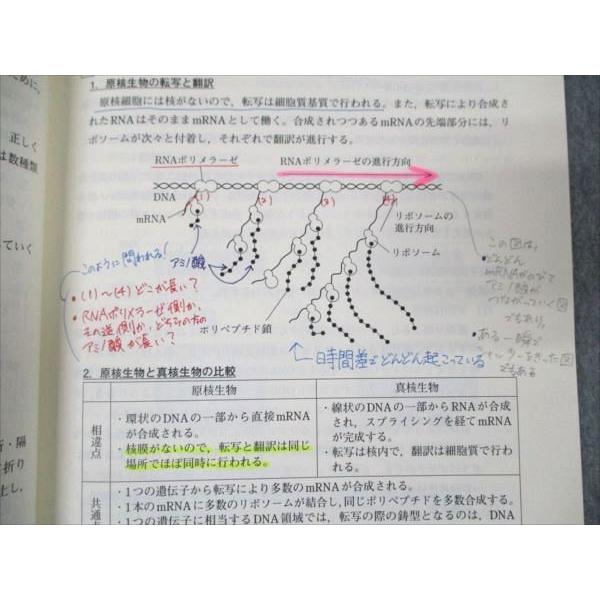 1. 原核生物の転写と翻訳
原核細胞には核がないので，転写は細胞質基質で行われる。また，転写により合成さ
れたRNAはそのままmRNAとして働く。合成されつつあるmRNAの先端部分には，リ
ボソームが次々と付着し，それぞれで翻訳が進行する。
正しく
は数種類
ていく
RNAポリメラーゼ
RNAポリメラーゼの進行方向
DNA
(1)
(2)
(3)
(4)
mRNA
リボソームの
進行方向
リボソーム
アミノ酸
ポリペプチド鎖
このように問われる!
・(1)〜(4)どこが長い?
・RNAポリメラーゼ側か、
その逆側か、どちらの方の
アミノ酸が長い?
←日時間差でどんどん起こっている
この図は、
どんどん
mRNAがのびて
アミノ酸が
つながっていく図
でもあり、
・ある一瞬で
シャッターをきった図
でもある
2. 原核生物と真核生物の比較
原核生物
真核生物
相違点
・環状のDNAの一部から直接mRNA
が合成される。
・核膜がないので，転写と翻訳は同じ
場所でほぼ同時に行われる。
・線状のDNAの一部からRNAが合成
され，スプライシングを経てmRNA
が完成する。
・転写は核内で，翻訳は細胞質で行わ
れる。
共通
・1つの遺伝子から転写により多数のmRNAが合成される。
・1本のmRNAに多数のリボソームが結合し，同じポリペプチドを多数合成する。
・1つの遺伝子に相当するDNA領域では，転写の際の鋳型となるのは，DNA
所・隔
折り
上し，